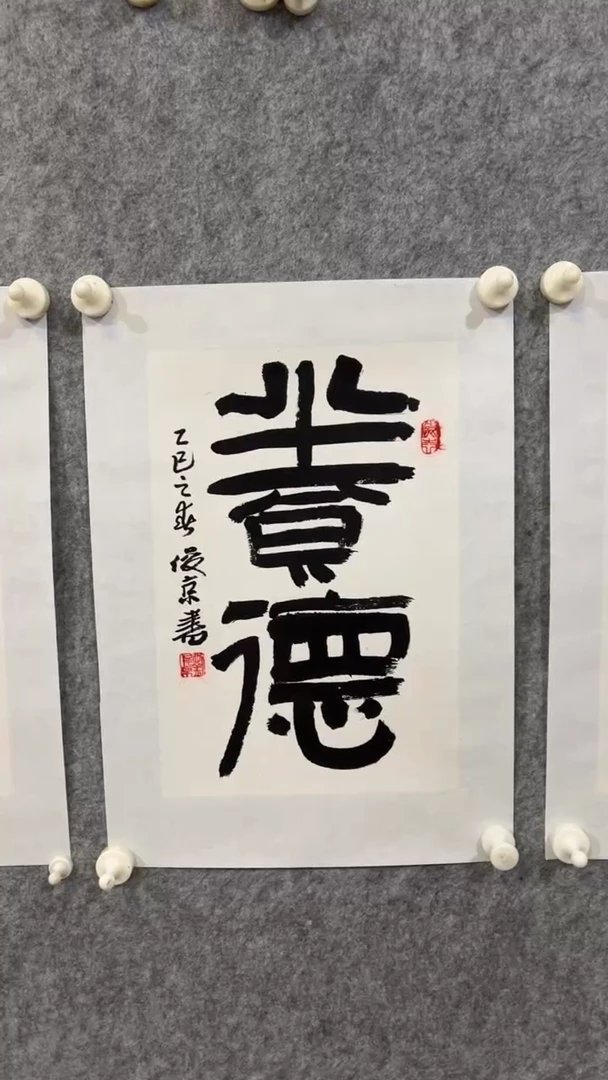 養德
乙巳之春 俊京書